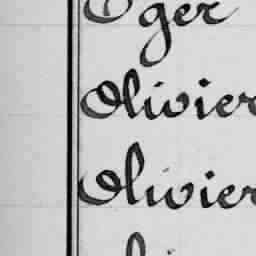 Oger
Olivier
Olivier